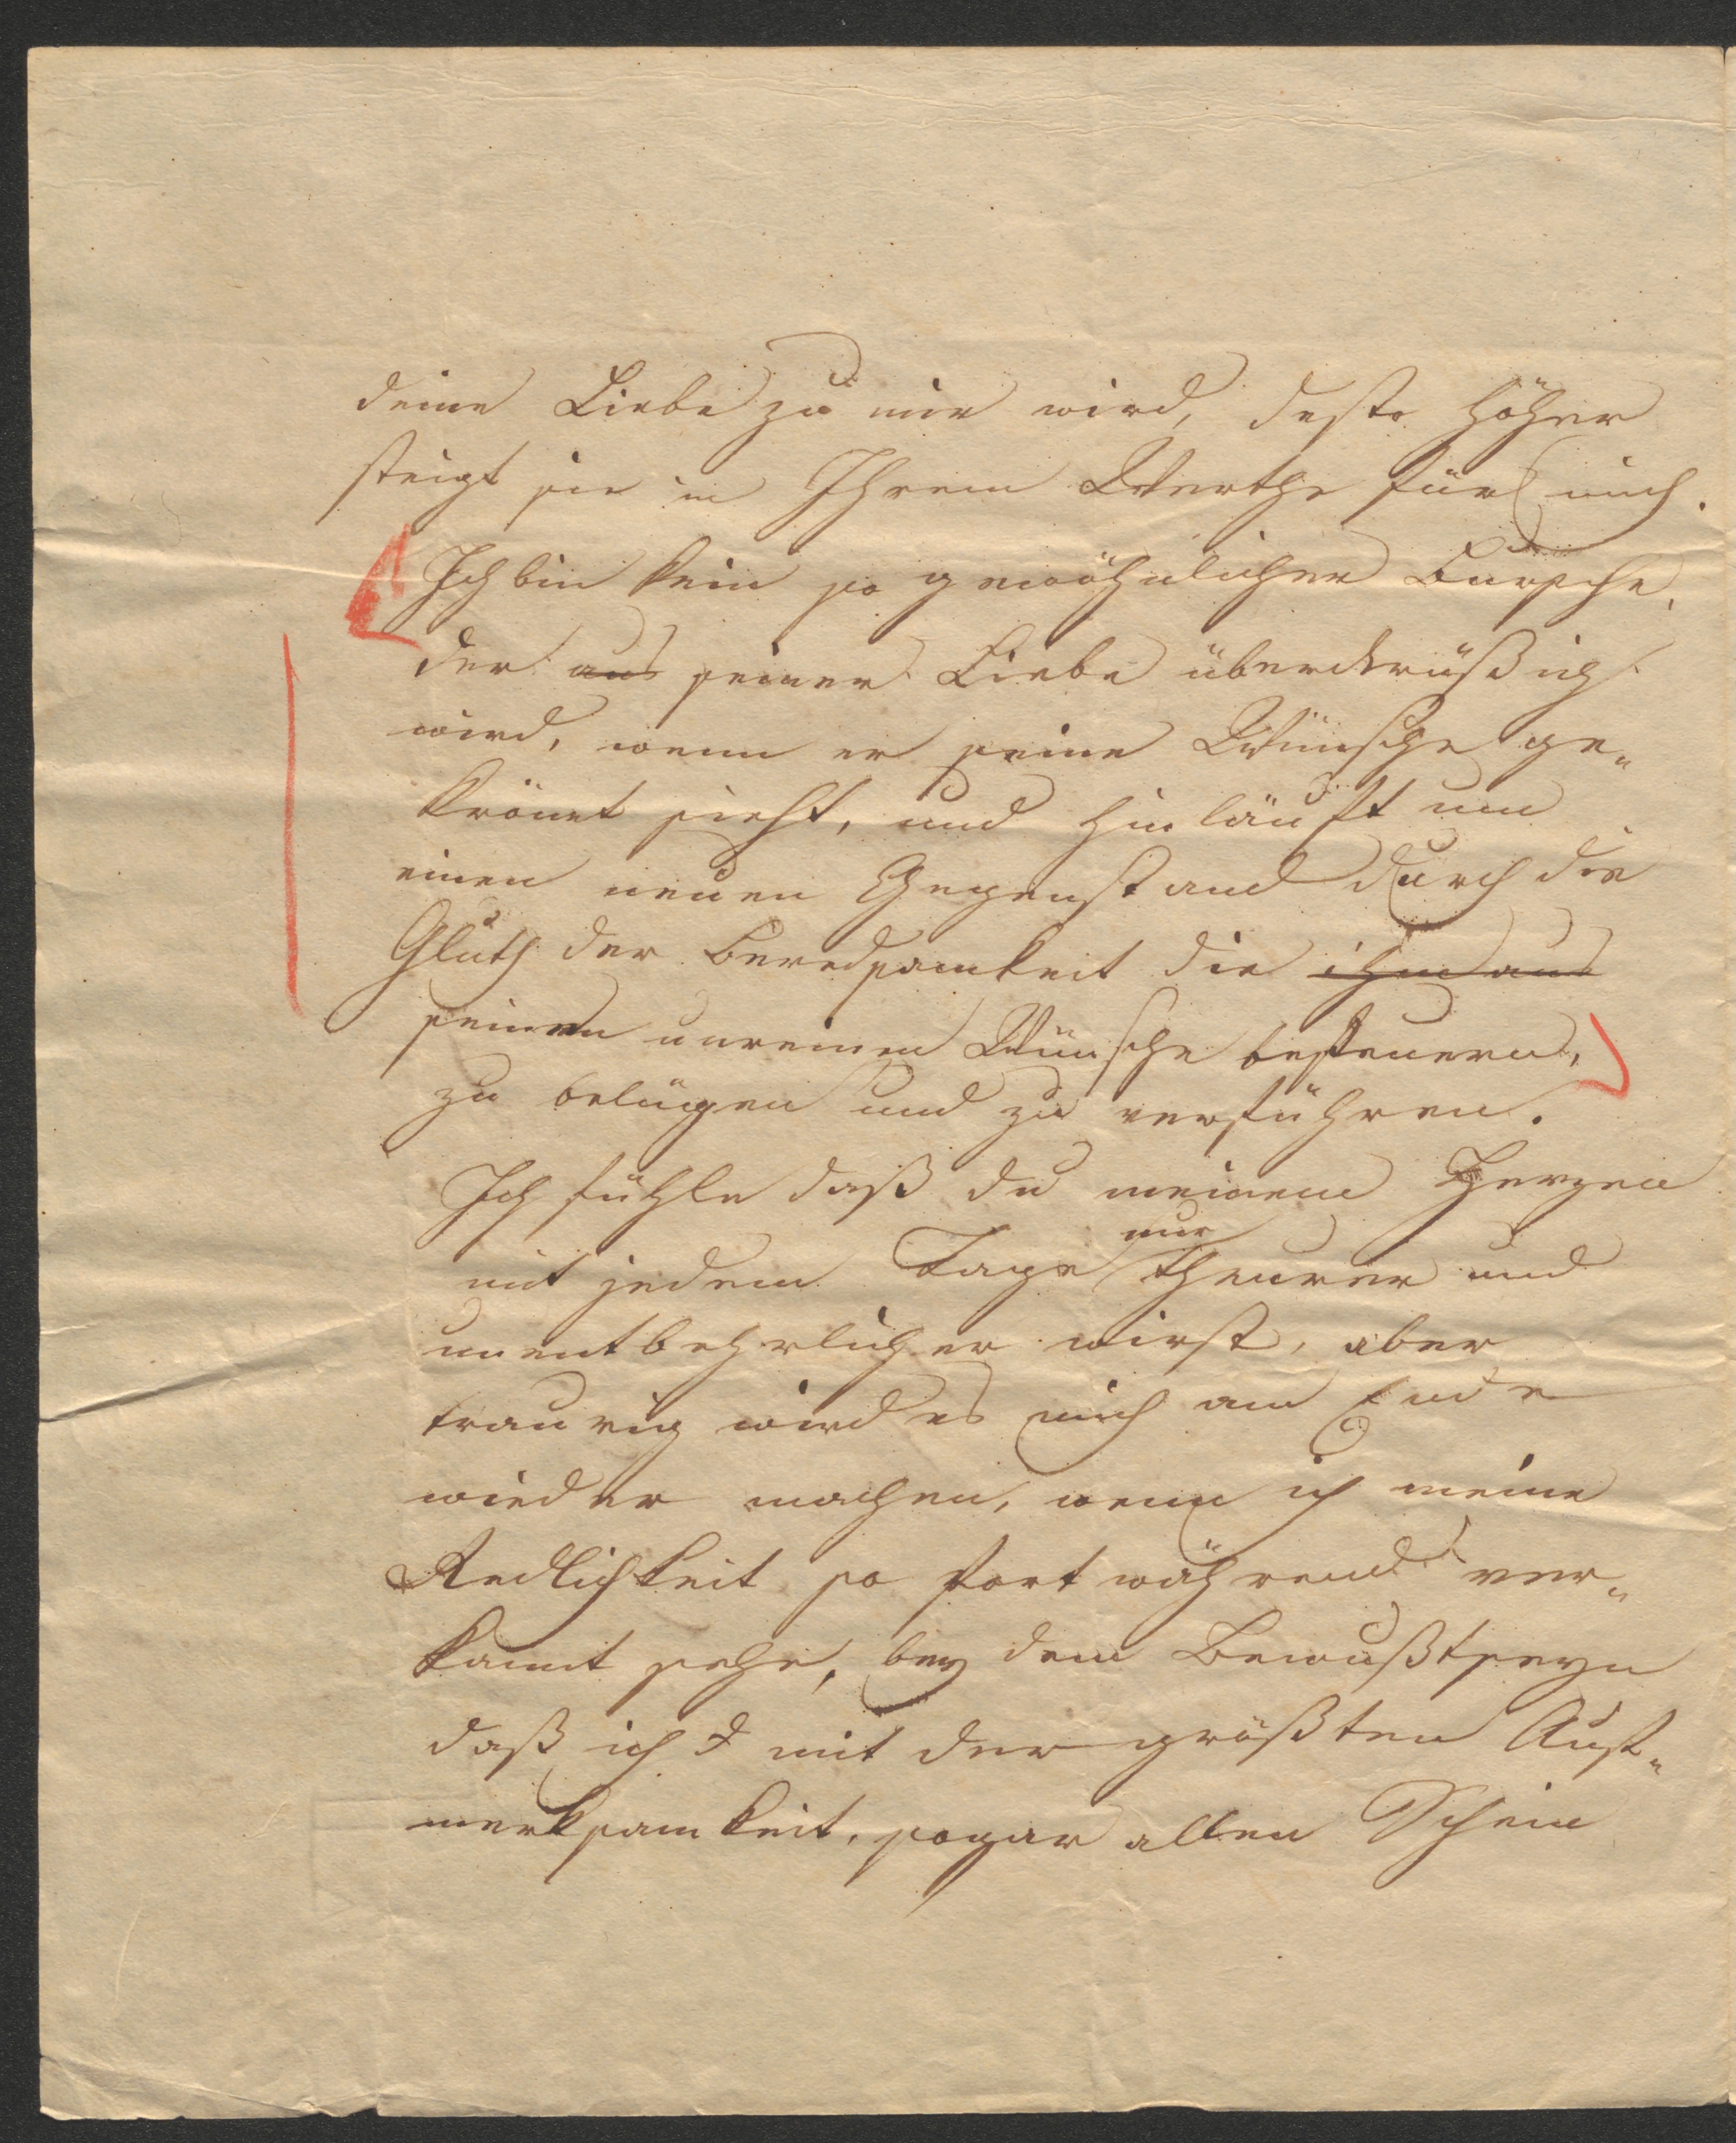 deine Liebe zu mir wird, desto höher
steigt sie in Ihrem Werthe für mich.
Ich bin kein so gewöhnlicher Bursche,
der aus seiner Liebe überdrüßich
wird, wenn er seine Wünsche ge„
krönet sieht, und hin läuft um
einen neuen Gegenstand durch die
Gluth der Beredsamkeit die ihm aus
seinen unreinen Wünsche befeuern,
zu belügen und zu verführen.
Ich fühle daß du meinem Herzen
nur
mit jedem Tage theurer und
unentbehrlicher wirst, aber
traurig wird es mich am Ende
wieder machen, wenn ich meine
Redlichkeit so fort während ver„
kannt sehe, bey dem Bewußtseyn
daß ich mit der größten Auf„
merksamkeit, sogar allen Schein